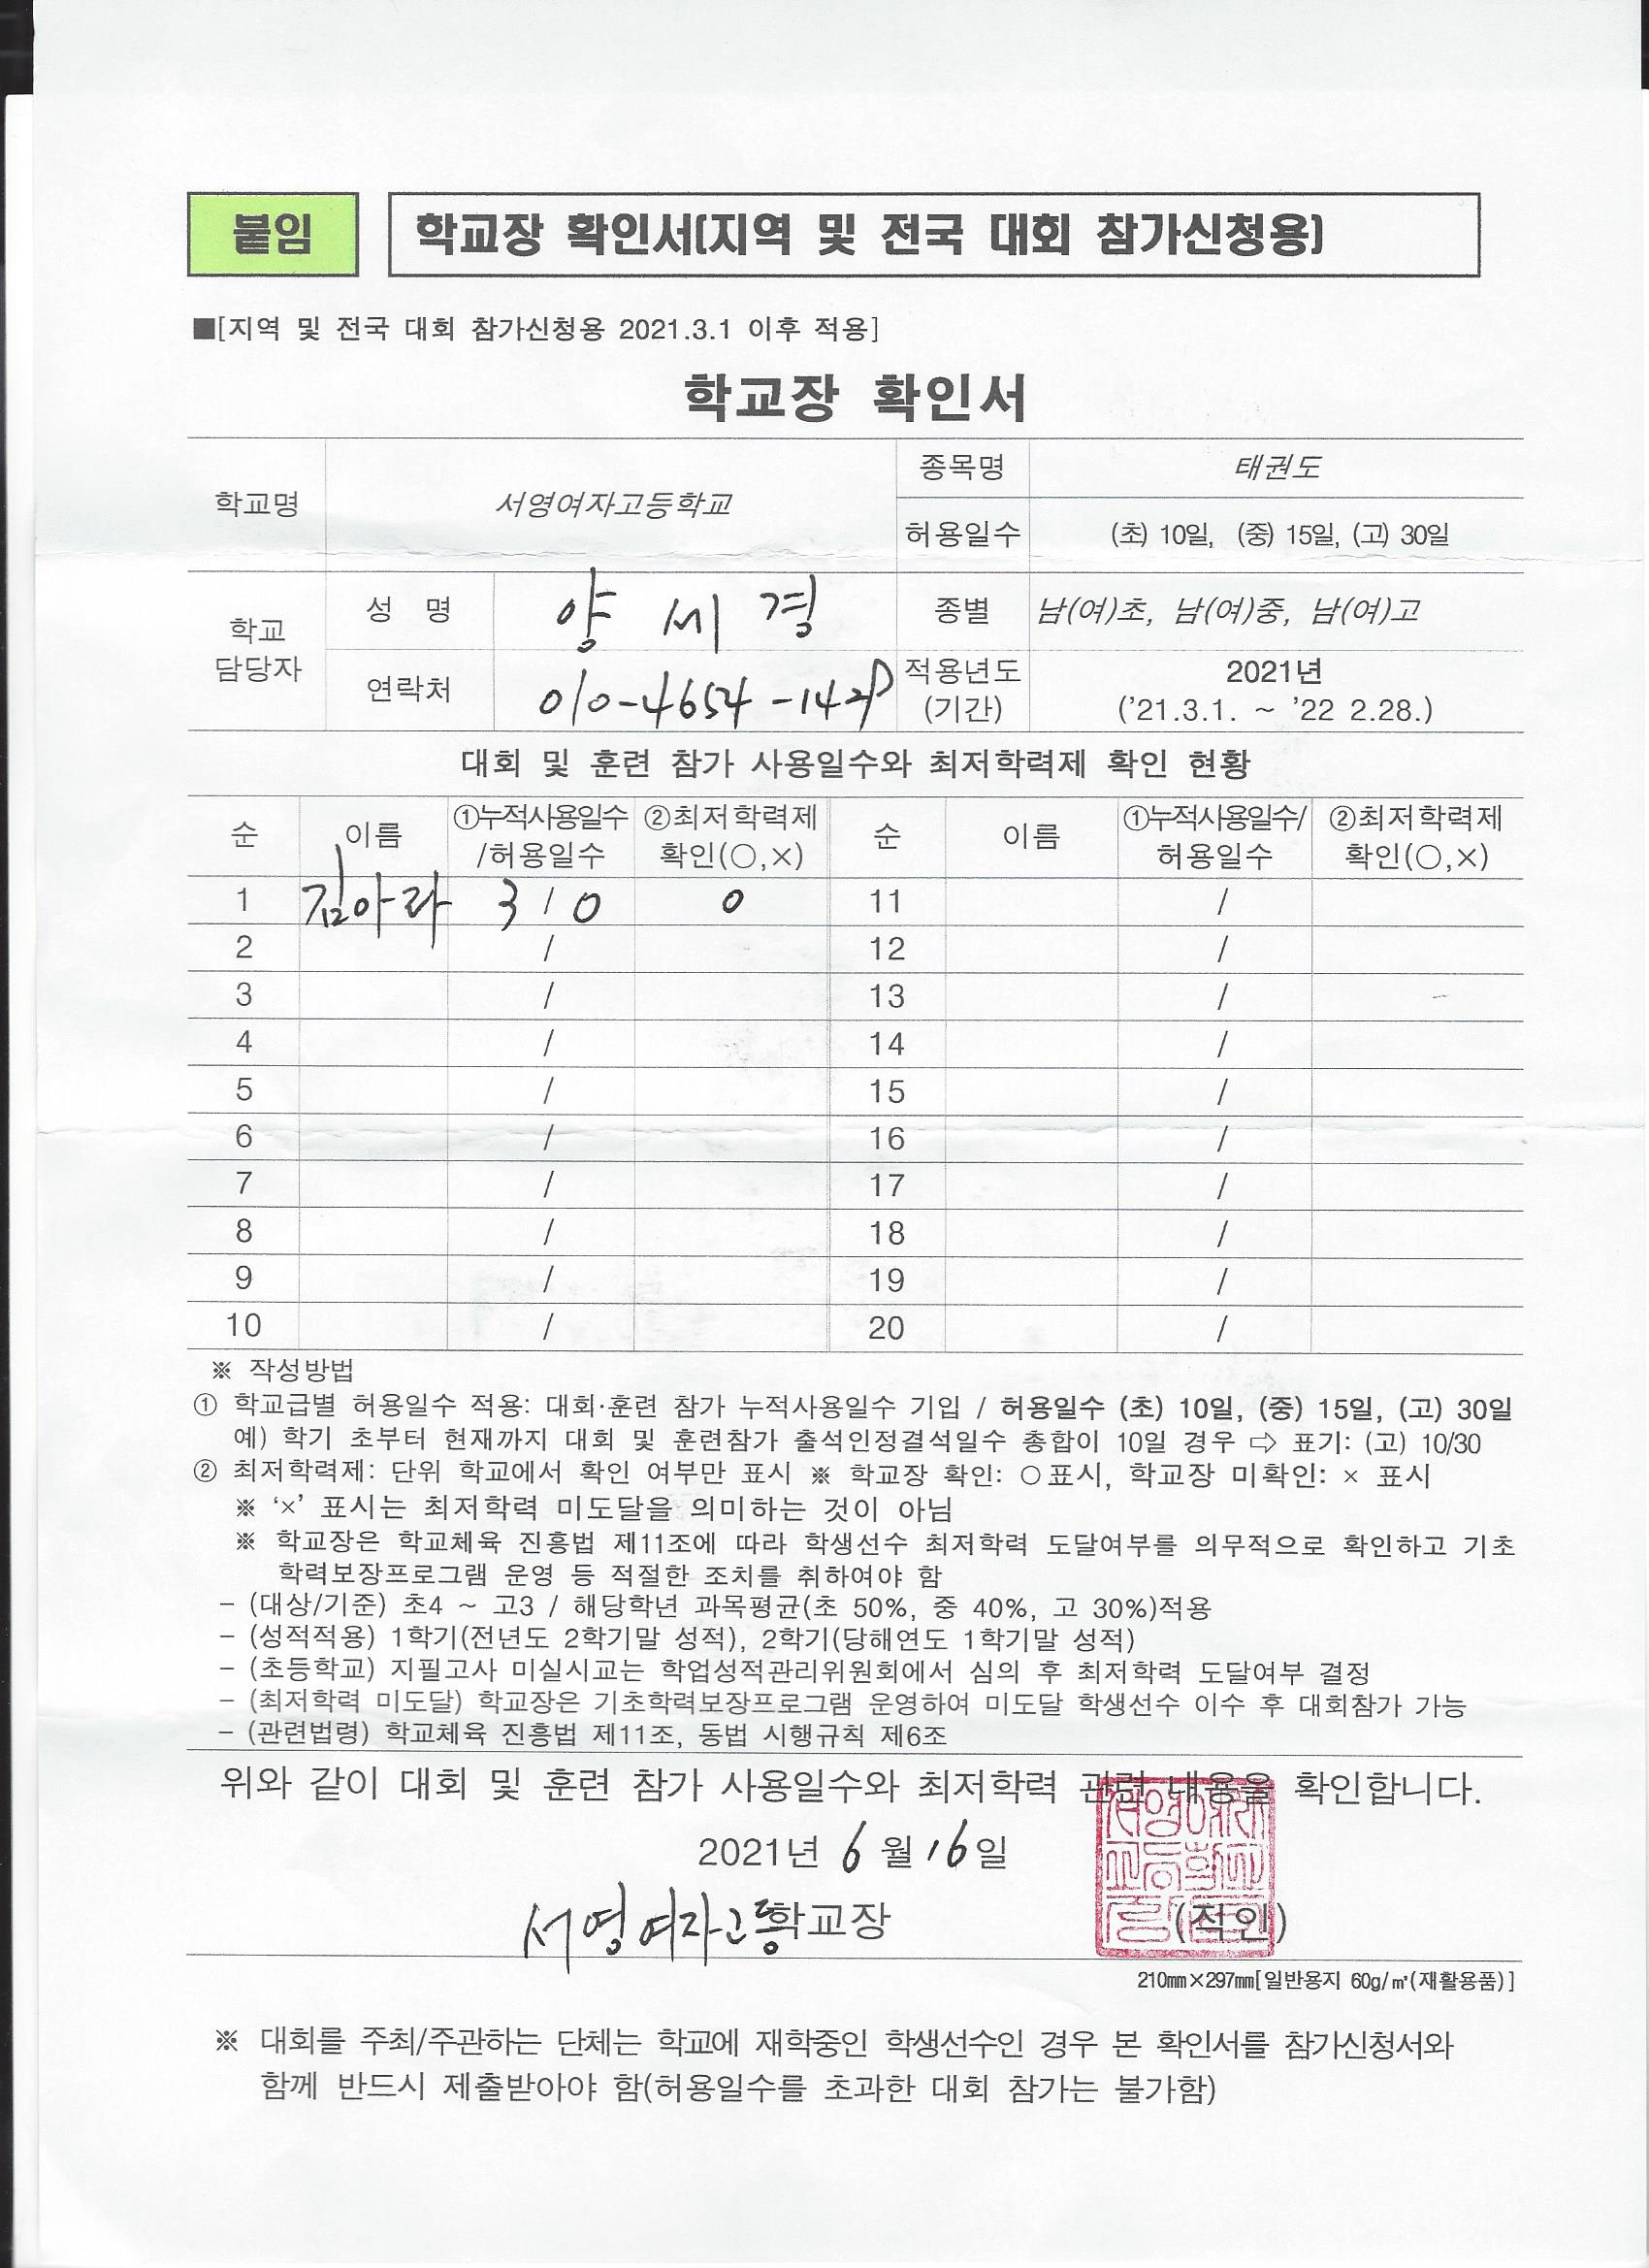 붙임 학교장 확인서(지역 및 전국 대회 참가신청용)
■[지역 및 전국 대회 참가신청용 2021.3.1 이후 적용]
학교장 확인서
학교명 서영여자고등학교 종목명 태권도
허용일수 (초) 10일, (중) 15일, (고) 30일
학교 담당자 성 명 양 세 경 종별 남(여)초, 남(여)중, 남(여)고
연락처 010-4654-1429 적용년도 (기간) 2021년 ('21.3.1. ~ '22 2.28.)
대회 및 훈련 참가 사용일수와 최저학력제 확인 현황
순 이름 ①누적사용일수/허용일수 ②최저학력제 확인(○,×) 순 이름 ①누적사용일수/허용일수 ②최저학력제 확인(○,×)
1 김아라 3 / 0 0 11 /
2 / 12 /
3 / 13 /
4 / 14 /
5 / 15 /
6 / 16 /
7 / 17 /
8 / 18 /
9 / 19 /
10 / 20 /
※ 작성방법
① 학교급별 허용일수 적용: 대회·훈련 참가 누적사용일수 기입 / 허용일수 (초) 10일, (중) 15일, (고) 30일
예) 학기 초부터 현재까지 대회 및 훈련참가 출석인정결석일수 총합이 10일 경우 ⇨ 표기: (고) 10/30
② 최저학력제: 단위 학교에서 확인 여부만 표시 ※ 학교장 확인: ○표시, 학교장 미확인: × 표시
※ '×' 표시는 최저학력 미도달을 의미하는 것이 아님
※ 학교장은 학교체육 진흥법 제11조에 따라 학생선수 최저학력 도달여부를 의무적으로 확인하고 기초
학력보장프로그램 운영 등 적절한 조치를 취하여야 함
- (대상/기준) 초4 ~ 고3 / 해당학년 과목평균(초 50%, 중 40%, 고 30%)적용
- (성적적용) 1학기(전년도 2학기말 성적), 2학기(당해연도 1학기말 성적)
- (초등학교) 지필고사 미실시교는 학업성적관리위원회에서 심의 후 최저학력 도달여부 결정
- (최저학력 미도달) 학교장은 기초학력보장프로그램 운영하여 미도달 학생선수 이수 후 대회참가 가능
- (관련법령) 학교체육 진흥법 제11조, 동법 시행규칙 제6조
위와 같이 대회 및 훈련 참가 사용일수와 최저학력 관련 내용을 확인합니다.
2021년 6 월 16 일
서영여자고등학교장 (직인)
210㎜×297㎜[일반용지 60g/㎡(재활용품)]
※ 대회를 주최/주관하는 단체는 학교에 재학중인 학생선수인 경우 본 확인서를 참가신청서와
함께 반드시 제출받아야 함(허용일수를 초과한 대회 참가는 불가함)